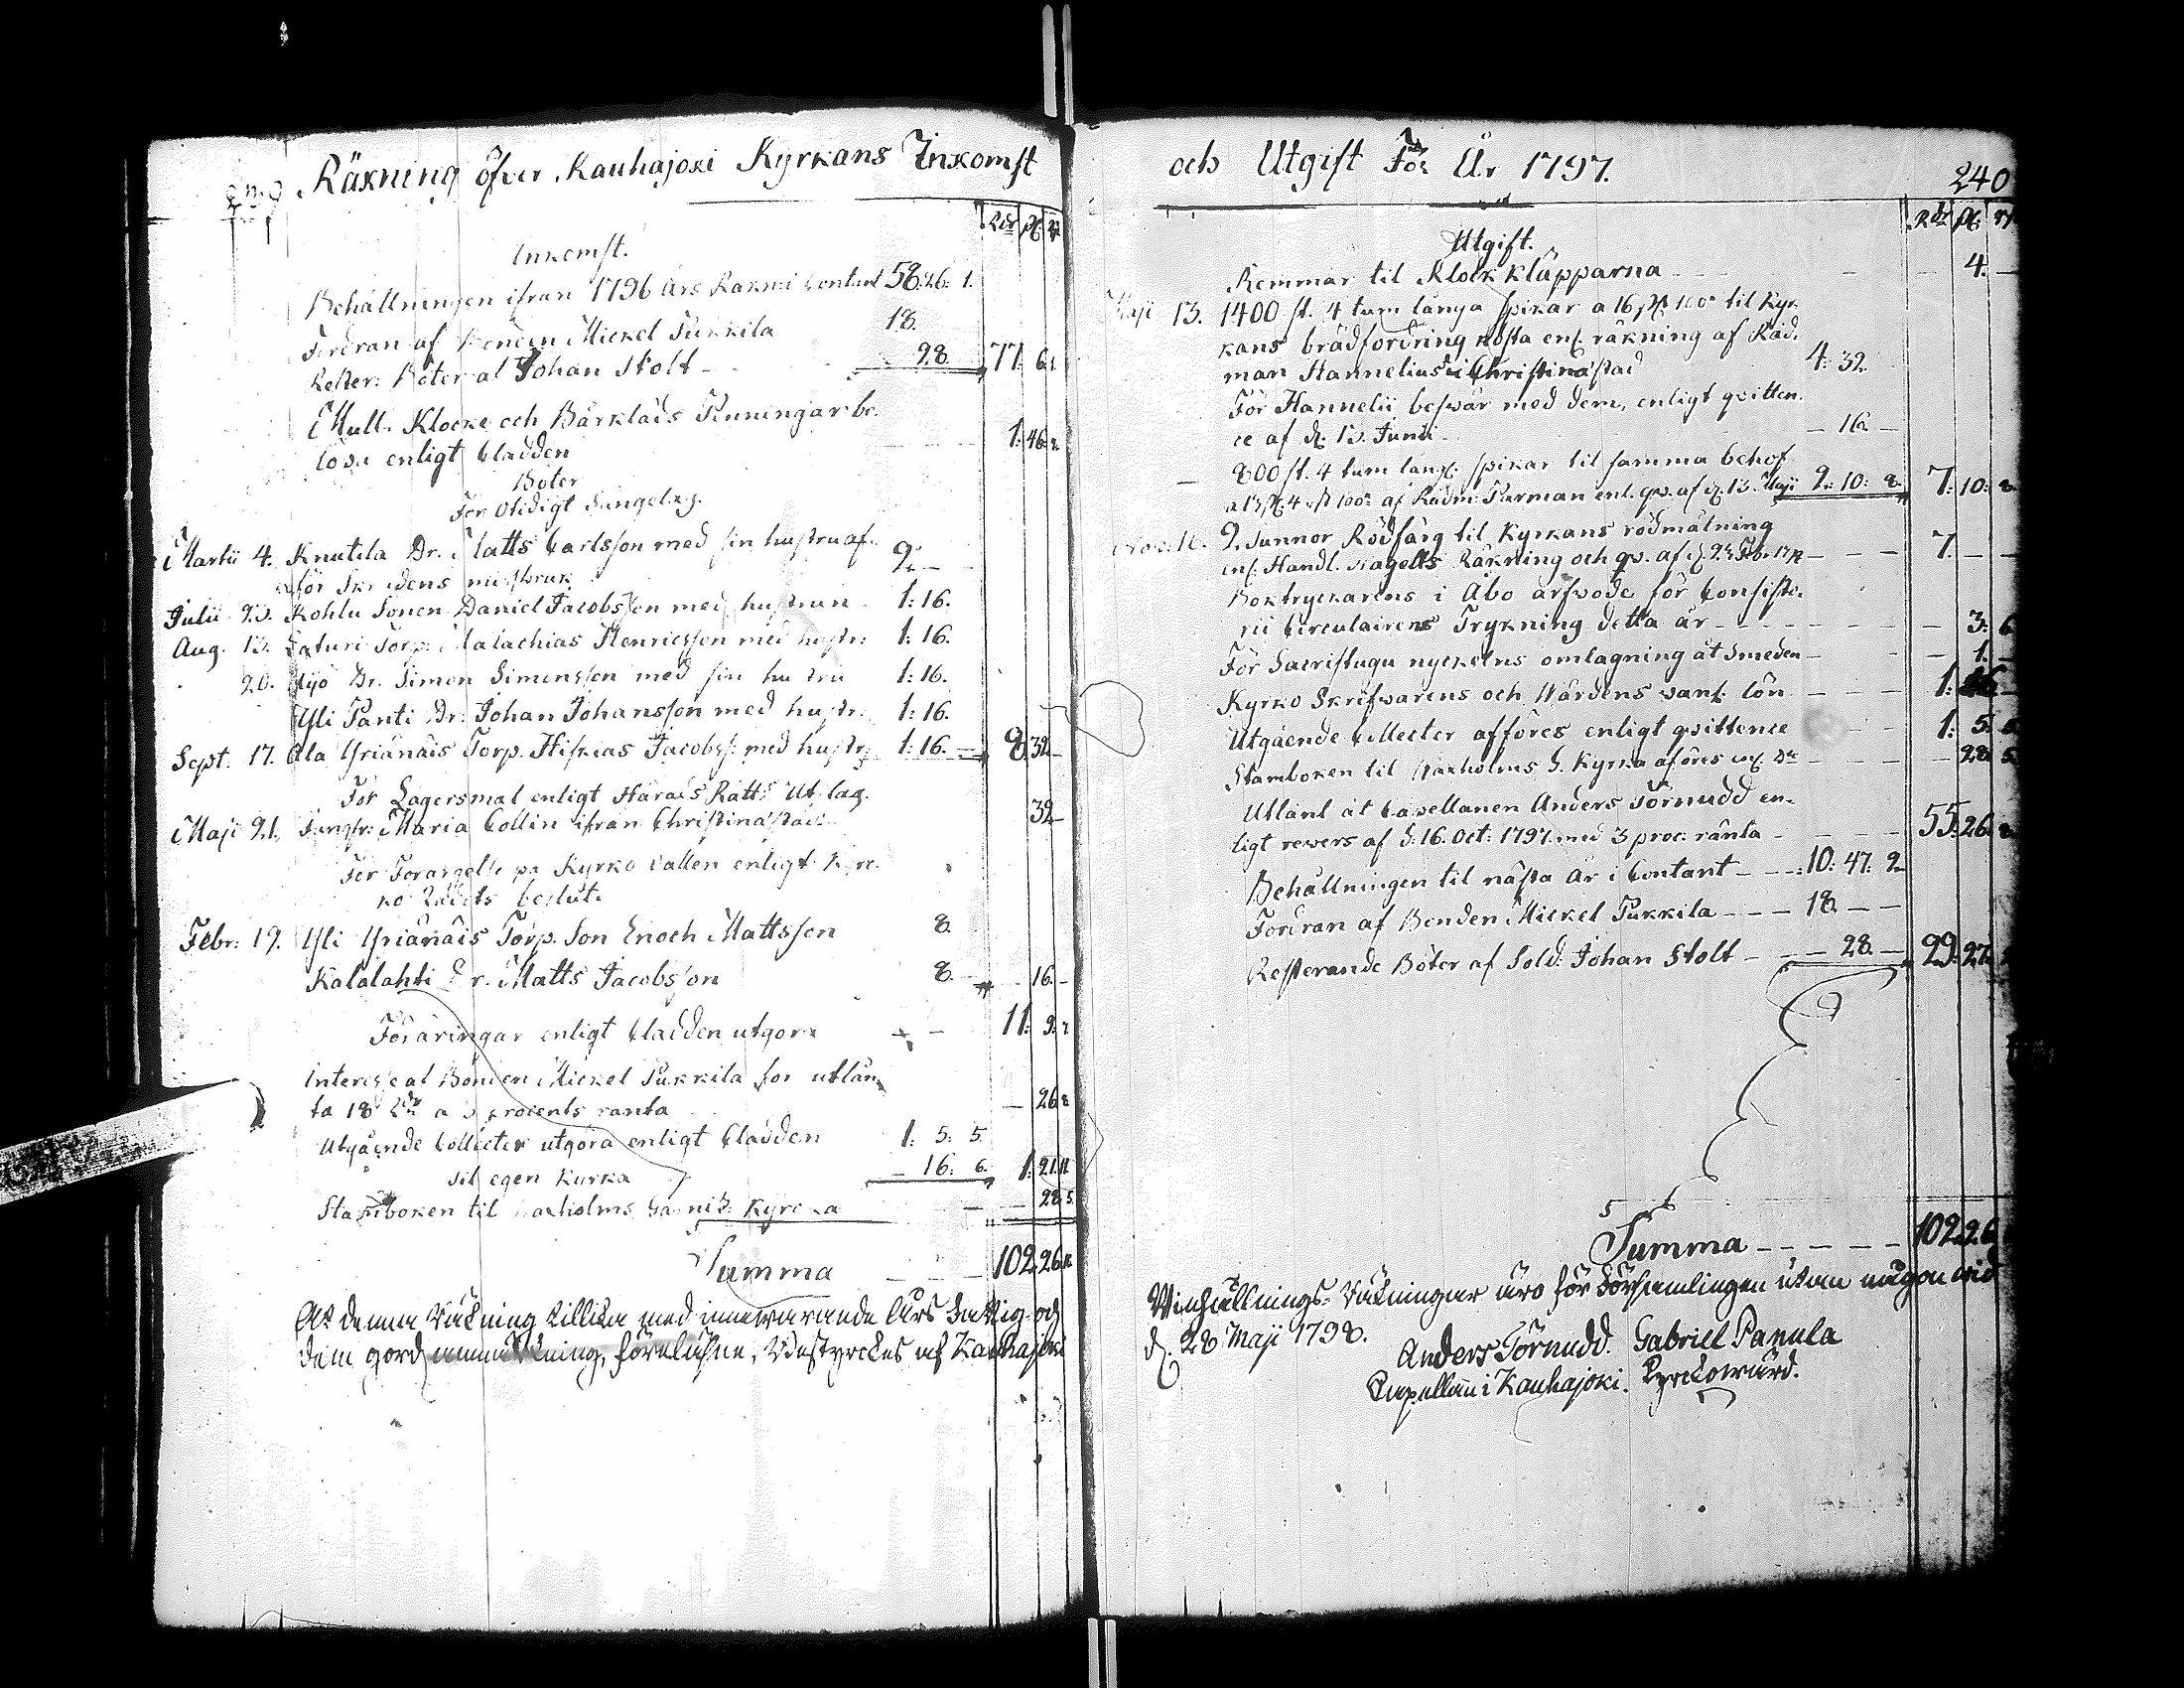 239 Räkning öfver Kauhajoki Kyrkans Inkomst
Rdr ß rst
Inkomst.
Behållningen ifrån 1796 års Räkn: i Contant 58: 26: 1.
Fordran af Bonden Mickel Pukkila 18.
Rester: Böter af Johan Stolt - 28. 77: 6. 1
Mull- Klocke och Bårklads Penningar be-
löpa enligt Cladden 1. 46. 2
Böter
För Otidigt Sängelag.
Martii 4. Knutila Dr. Matts Carlsson med sin hustru
för Skridens missbruk 2. -
Julii 23. Kohlu Sonen Daniel Jacobsson med hustrun 1: 16.
Aug. 13. Saturi Torp: Malachias Henricsson med hustr: 1: 16.
20. Dr. Simon Simonsson med sin hustru 1: 16.
Yli Panti Dr. Johan Johansson med hustr: 1: 16.
Sept. 17. Ala Yrjänäis Torp. Hiskias Jacobss: med hustr: 1: 16. - 8. 32. -
För Lägersmål enligt Härads Rätts Utslag.
Maji 21. Jungfr: Maria Collin ifrån Christinæstad 32. -
För Förargelse på Kyrko vallen enligt Kyr-
ko Rådets beslut.
Febr: 19. Yli Yrjänäis Torp. Son Enoch Mattsson 8.
Kalalahti Dr. Matts Jacobsson 8. - 16. -
Föräringar enligt Cladden utgöra - 11. 9. 7
Interesse af Bonden Mickel Pukkila för utlån-
ta 18 Rdr a 3 procents ränta - 26. 8
Utgående Collecter utgöra enligt Cladden 1: 5: 5.
til egen Kyrka - 16: 6. 1: 21. 11
Stamboken til Waxholms Garnis: Kyrka - 28. 5.
Summa - - - 102. 26. 11
At denna Räkning tillika med innevarande Års Fattig- och
dem gord anmärkning, föreläsne, Bestyrckes uti Kauhajoki
och Utgift För År 1797.
240
Rdr ß rst
Utgift.
Remmar til Klock kläpparna - - - 4. -
Maji 13. 1400 st. 4 tum långa spikar a 16 ß 100de til Kyr-
kans brädfordring kosta enl. räkning af Råd-
man Hannelius i Christinæstad 4: 32.
För Hannelii besvär med dem, enligt qvitten-
ce af d. 13. Junii - 16. -
- 800 st. 4 tum lång: spikar til samma behof
a 13 ß 4 rst 100de af Rådm: Purman enl. qv. af d. 13. Maji 2: 10: 8. 7: 10: 8
Nov. 16. 2. Tunnor Rödfärg til Kyrkans rödmålning
enl. Handl. Ragells Räkning och qv. af d. - - - 7. - -
Boktryckarens i Åbo arfwode för Consisto-
rii Circulairens Tryckning detta år - - - 3: 6
För Sacristugu nyckelns omlagning åt Smeden - 1. -
Kyrko Skrifwarens och Wärdens wanl. lön - - - 1: 16
Utgående Collecter afföres enligt qvittence - 1: 5: 5
Stamboken til Waxholms G. Kyrka aföres enl. Do - - - 28. 5
Utlånt åt Capellanen Anders Törnudd en-
ligt revers af d. 16. Oct: 1797. med 3 proc. ränta - - - 55: 26: 8
Behållningen til nästa år i Contant - - - 10: 47: 2
Fordran af Bonden Mickel Pukkila - - - 18. - -
Resterande Böter af Sold: Johan Stolt - - - 28. - 29: 27:
Summa - - - - - 102. 26
Winhållnings-Räkningar äro för Församlingen utan någon wid
d. 28 Maji 1798.
Anders Törnudd. Gabriel Panula
Capellan i Kauhajoki. Kyrckowärd.